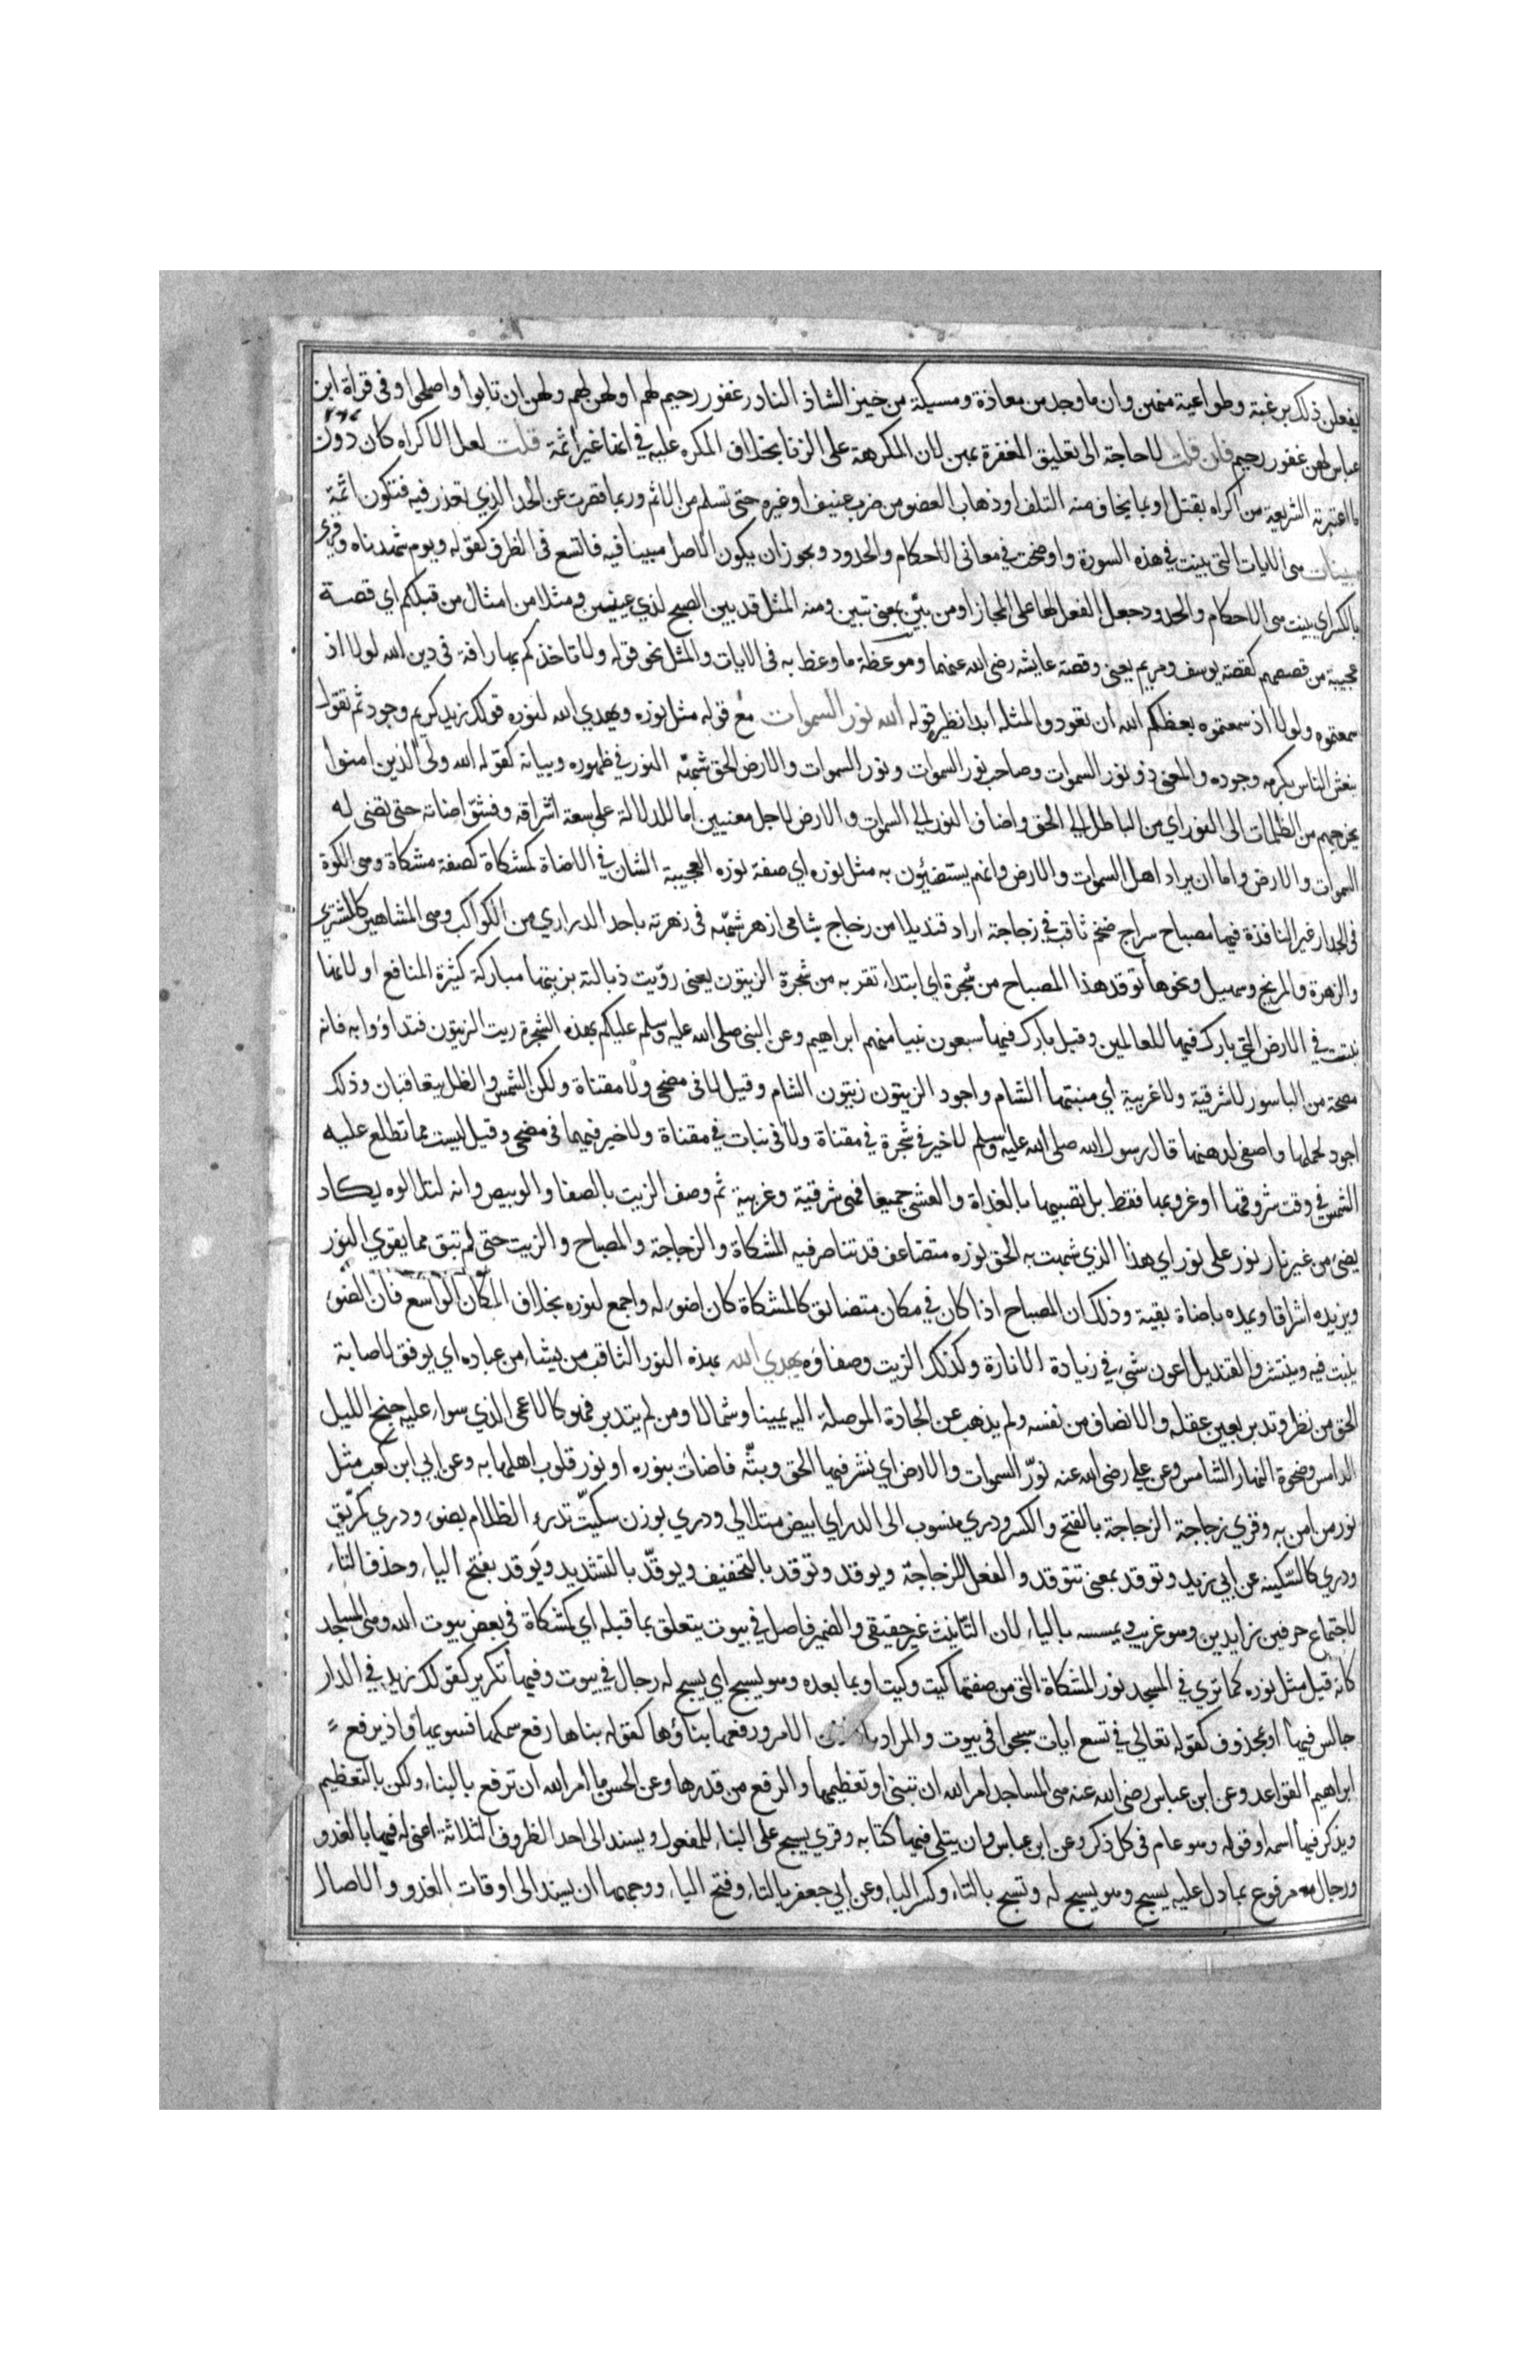 يفعلن ذلك برغبة وطواعية منهن وان ما وجد من معاذة ومسيكة من خيز الشاذ النادر غفور رحيم لهم او لهن لهم ولهن ان تابوا واصلحوا وفى قراة ابن
عباس لهن غفور رحيم فان قلت لا حاجة الى تعليق المغفرة بهن لان المكرهة على الزنا بخلاف المكره عليه في انها غير اثمة قلت لعل الاكراه كان دون
ما اعتبرته الشريعة من اكراه بقتل او بما يخاف منه التلف او ذهاب العضو من ضرب عنيف او غيره حتى تسلم من الاثم وربما قصرت عن الحد الذي تعذر فيه فتكون اثمة
مبينات هى الايات التى بينت في هذه السورة واوضحت في معانى الاحكام والحدود ويجوز ان يكون الاصل مبينا فيه فاتسع فى الظرف كقوله ويوم شهدناه وقرى
بالكسر اي بينت هى الاحكام والحدود جعل الفعل لها على المجاز او من بيّن بمعنى تبين ومنه المثل قد بين الصبح لذي عينين ومثلا من امثال من قبلكم اي قصة
عجيبة من قصصهم كقصة يوسف ومريم يعنى وقصة عايشه رضى الله عنها وموعظة ما وعظ به فى الايات والمثل نحو قوله ولا تاخذكم بهما رافة فى دين الله لولا اذ
سمعتموه ولولا اذ سمعتموه يعظكم الله ان تعودوا لمثله ابدا نظير قوله الله نور السموات مع قوله مثل نوره ويهدي الله لنوره قولك زيد كريم وجود ثم تقول
ينعش الناس بكرمه وجوده والمعنى ذو نور السموات وصاحب نور السموات ونور السموات والارض الحق شبهه النور في ظهوره وبيانه كقوله الله ولى الذين امنوا
يخرجهم من الظلمات الى النور اي من الباطل الي الحق واضاف النور الي السموات والارض لاجل معنيين اما للدلالة على سعة اشراقه وفشوّ اضاته حتى تضى له
السموات والارض واما ان يراد اهل السموات والارض وانهم يستضيئون به مثل نوره اي صفة نوره العجيبة الشان في الاضاة كمشكاة كصفة مشكاة وهى الكوة
فى الجدار غير النافذة فيها مصباح سراج ضخم ثاقب في زجاجة اراد قنديلا من زجاج شامى ازهر شبهه فى زهرته باحد الدراري من الكواكب وهى المشاهير كالمشتري
والزهرة والمريخ وسهيل ونحوها توقد هذا المصباح من شجرة اي ابتداء تقربه من شجرة الزيتون يعنى روّيت ذبالته بزيتها مباركة كثيرة المنافع او لانها
نبتت في الارض التي بارك فيها للعالمين وقيل بارك فيها سبعون نبيا منهم ابراهيم وعن النبى صلى الله عليه وسلم عليكم بهذه الشجرة زيت الزيتون فتداووا به فانه
مصحة من الباسور لا شرقية ولا غربية اي منبتها الشام واجود الزيتون زيتون الشام وقيل لا فى مضحى ولا مقناة ولكن الشمس والظل يتعاقبان وذلك
اجود لحملها واصفى لدهنها قال رسول الله صلى الله عليه وسلم لا خير في شجرة في مقناة ولا فى نبات في مقناة ولا خير فيهما فى مضحى وقيل ليست مما تطلع عليه
الشمس في وقت شروقها او غروبها فقط بل تصيبها بالغداة والعشي جميعا فهى شرقية وغربية ثم وصف الزيت بالصفا والوبيص وانه لتلالوه يكاد
يضىء من غير نار نور على نور اي هذا الذي شبهت به الحق نوره متضاعف قد تناصر فيه المشكاة والزجاجة والمصباح والزيت حتى لم تبق مما يقوي النور
ويزيده اشراقا ويمده باضاة بقية وذلك ان المصباح اذا كان في مكان متضائق كالمشكاة كان اضوء له واجمع لنوره بخلاف المكان الواسع فان الضوء
ينبت فيه وينتشر والقنديل اعون شي في زيادة الانارة وكذلك الزيت وصفاؤه يهدي الله بهذه النور الثاقب من يشاء من عباده اي يوفق لاصابة
الحق من نظر وتدبر بعين عقله والانصاف من نفسه ولم يذهب عن الجادة الموصلة اليه يمينا وشمالا ومن لم يتدبر فهو كالاعمى الذي سواء عليه جنح الليل
الدامس وضحوة النهار الشامس وعن على رضى الله عنه نوّر السموات والارض اي نشر فيها الحق وبثّه فاضات بنوره او نور قلوب اهلها به وعن ابي ابن كعب مثل
نور من امن به وقري زجاجة الزجاجة بالفتح والكسر ودري منسوب الى الدر اي ابيض متلالى ودري بوزن سكيت تدرء الظلام بضوء ودري كمرّيق
ودري كالسّكينه عن ابي زيد وتوقد بمعنى تتوقد والفعل للزجاجة ويوقد وتوقد بالتخفيف ويوقّد بالتشديد ويوقد بفتح الياء وحذف التاء
لاجتماع حرفين زايدين وهو غريب ويمسسه بالياء لان التّانيث غير حقيقى والضمير فاصل في بيوت يتعلق بما قبله اي كمشكاة فى بعض بيوت الله وهى المساجد
كانه قيل مثل نوره كما تري في المسجد نور المشكاة التى من صفتها كيت وكيت او بما بعده وهو يسبح اي يسبح له رجال في بيوت وفيها تكرير كقولك زيد في الدار
جالس فيها او بمحذوف كقوله تعالي في تسع ايات سبحوا فى بيوت والمراد بالاذن الامر ورفعها بناؤها كقوله بناها رفع سمكها فسويها واذ يرفع
ابراهيم القواعد وعن ابن عباس رضى الله عنه هى المساجد امر الله ان تبنى او تعظيمها والرفع من قدرها وعن الحسن ما امر الله ان ترفع بالبناء ولكن بالتعظيم
ويذكر فيها اسمه اوفق له وهو عام فى كل ذكر وعن ابن عباس وان يتلى فيها كتابه وقري يسبح على البناء للمفعول ويسند الى احد الظروف الثلاثة اعنى له فيها بالغدو
ورجال مرفوع بما دل عليه يسبح وهو يسبح له وتسبح بالتاء وكسر الياء وعن ابي جعفر بالتاء وفتح الياء ووجهها ان يسند الى اوقات الغدو والاصال